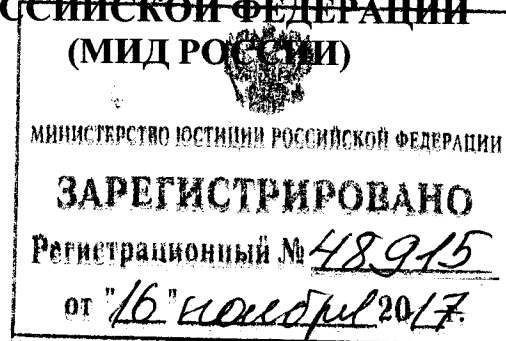 ССИЙСКОЙ ФЕДЕРАЦИИ
(МИД РОССИИ)
МИНИСТЕРСТВО ЮСТИЦИИ РОССИЙСКОЙ ФЕДЕРАЦИИ
ЗАРЕГИСТРИРОВАНО
Регистрационный № 48915
от "16" ноября 2017г.